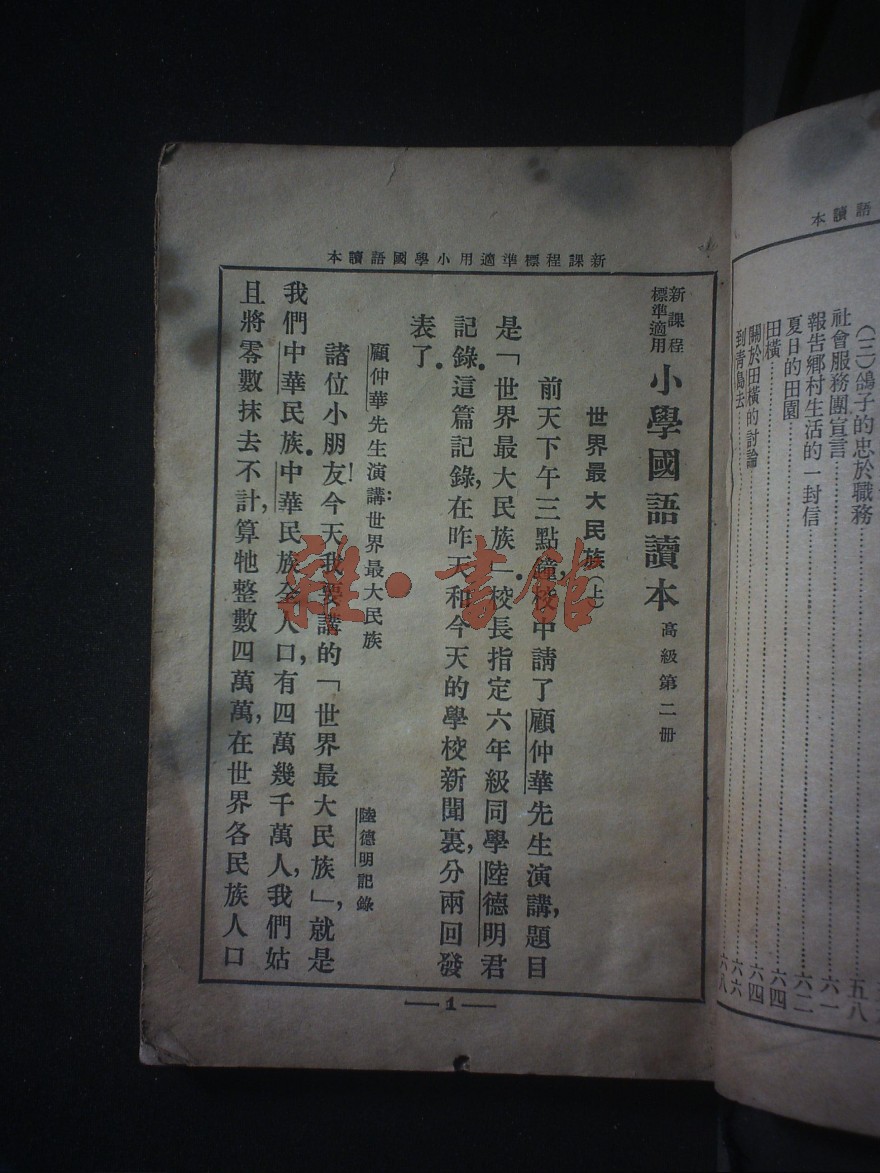 語讀本
(三)鴿子的忠於職務 五八
社會服務團宣言 六一
報告鄉村生活的一封信 六二
夏日的田園 六四
田橫 六四
關於田橫的討論 六六
到青島去 六八
新課程標準適用小學國語讀本
新課程標準適用
小學國語讀本 高級第二冊
世界最大民族(上)
前天下午三點鐘,校中請了顧仲華先生演講,題目
是「世界最大民族」.校長指定六年級同學陸德明君
記錄.這篇記錄,在昨天和今天的學校新聞裏,分兩回發
表了.
顧仲華先生演講:世界最大民族
陸德明記錄
諸位小朋友!今天我要講的「世界最大民族」,就是
我們中華民族.中華民族全人口,有四萬幾千萬人,我們姑
且將零數抹去不計,算牠整數四萬萬,在世界各民族人口
1
雜·書館